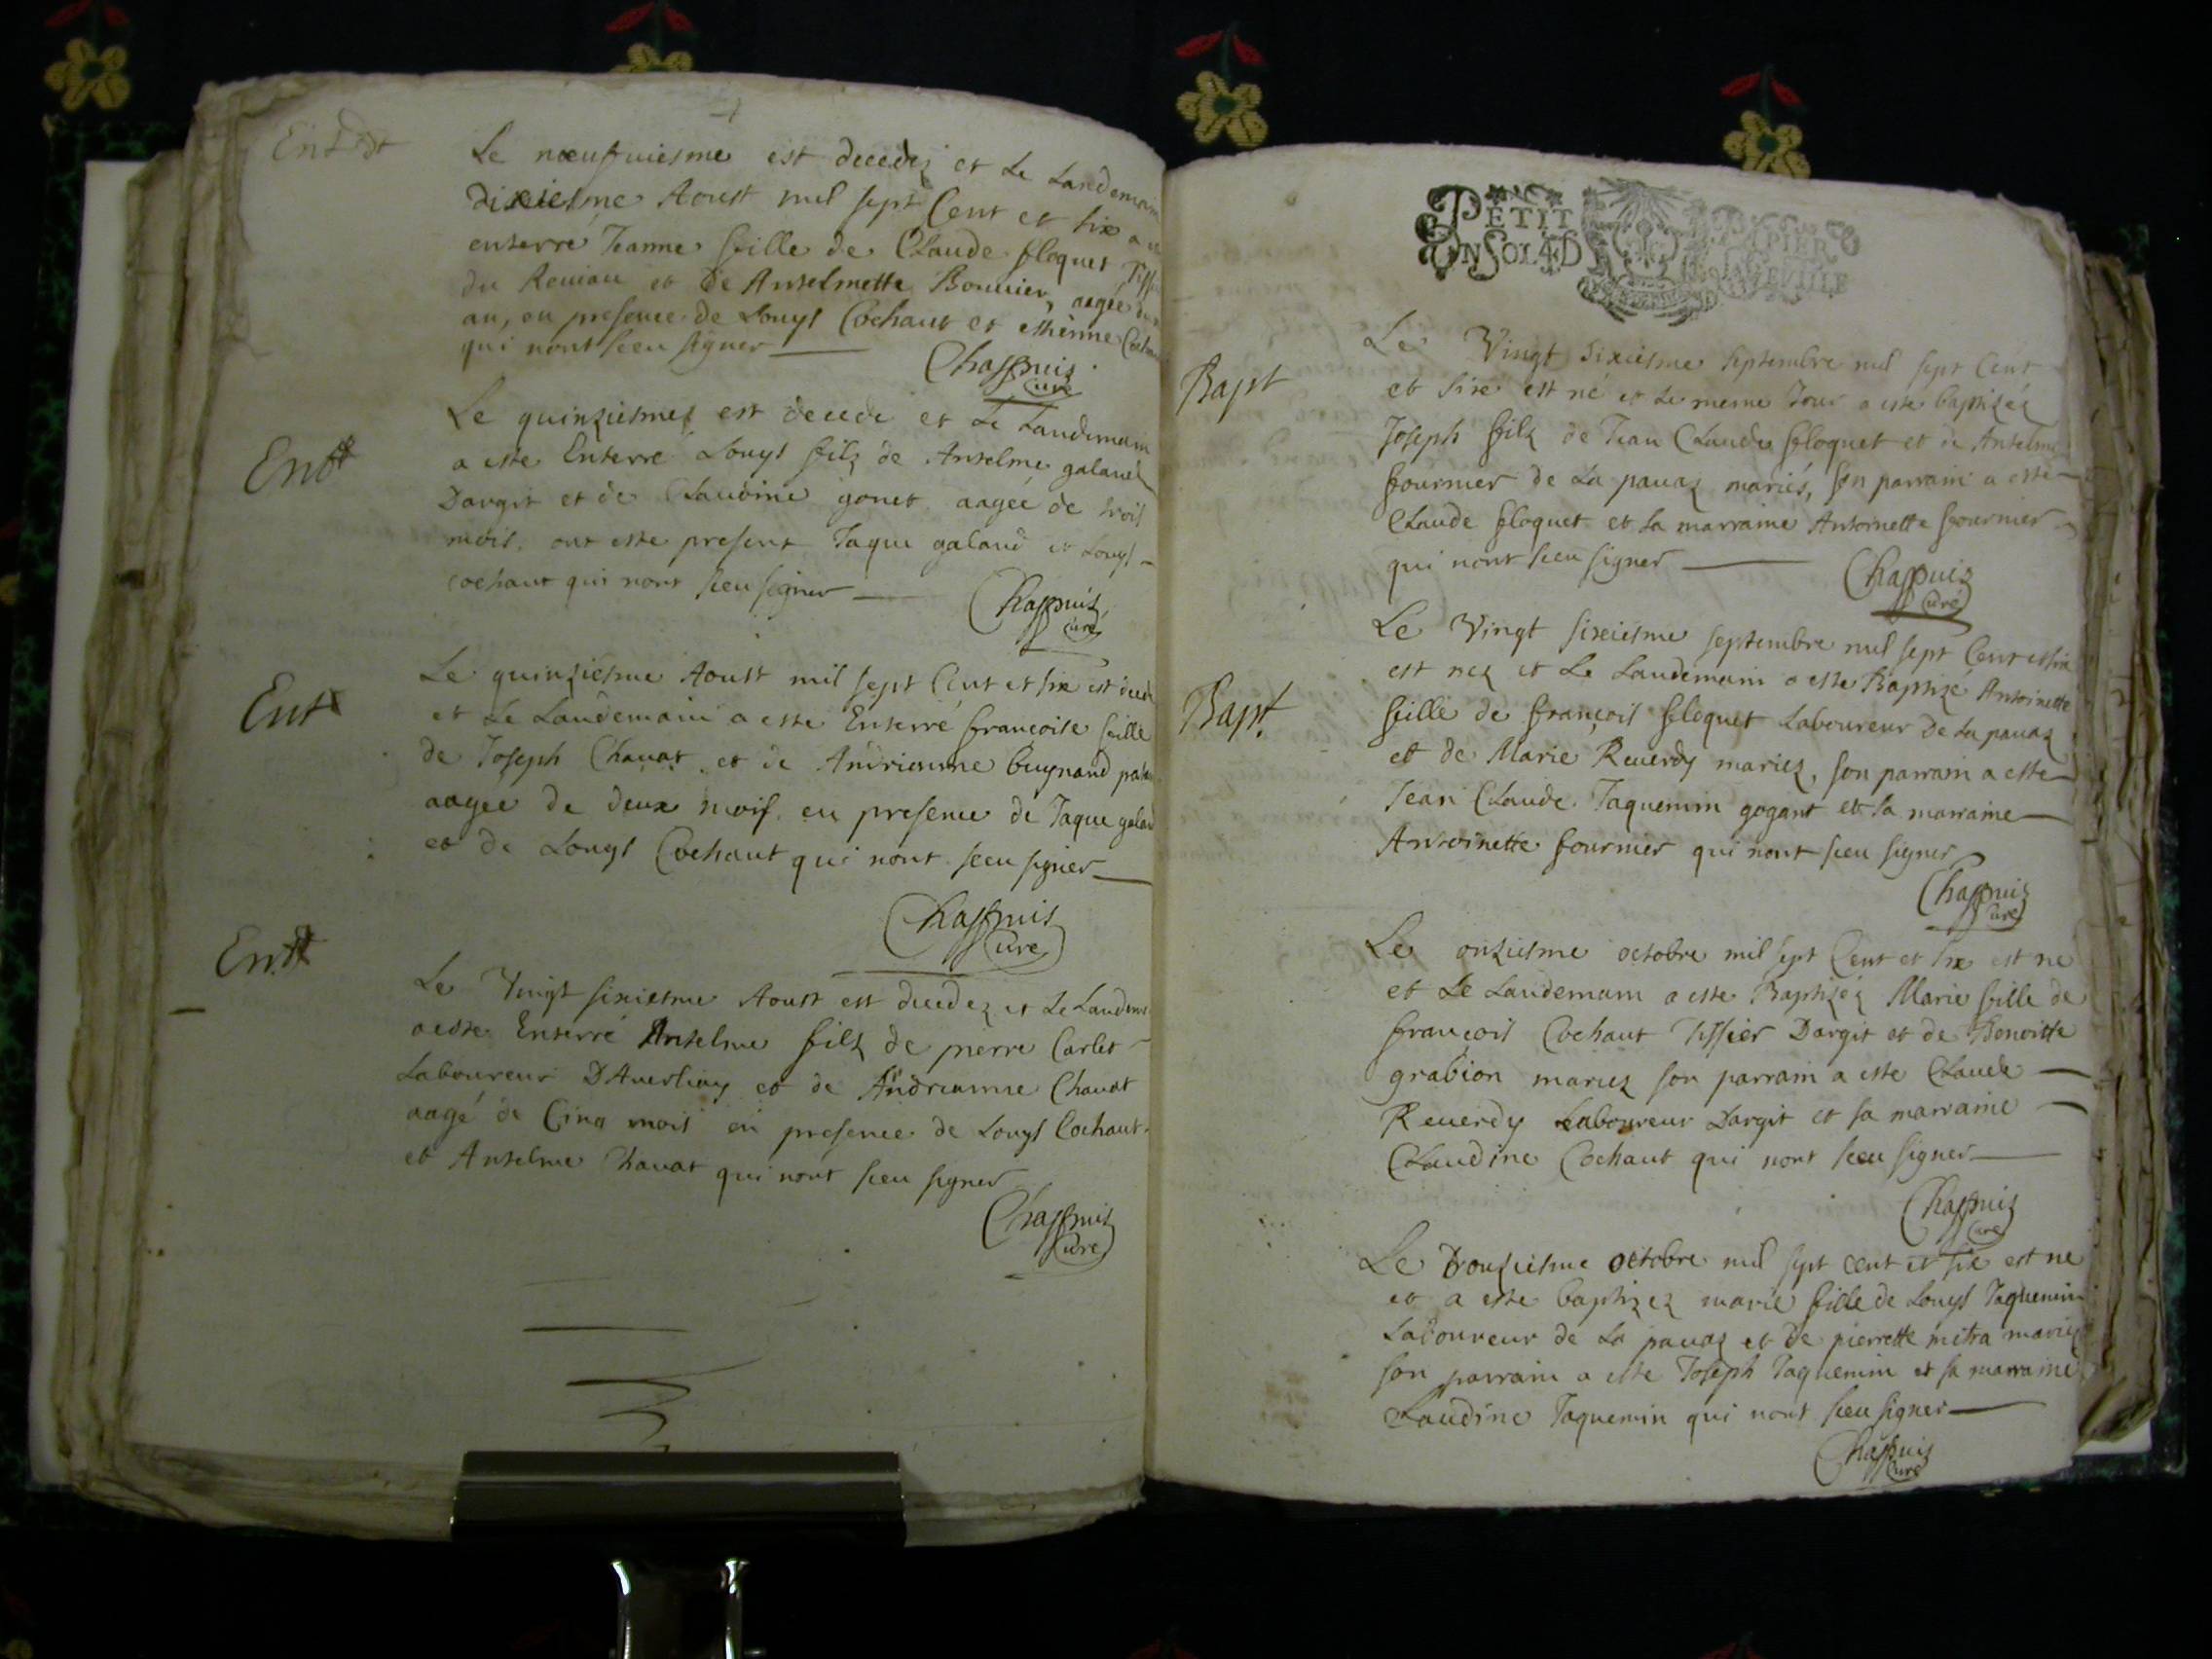 Ent
Le nœufuiesme est decedez et Le Landemain
dixiesme Aoust mil sept Cent et six a
enterré Jeanne fille de Claude floquet Tissi
du Reuiau et de Anselmette Bonnier, aagée
an, en presence de Louys Cochaut et esthienne
qui nont sceu signer
Chappuis
Curé
Ent
Le quinziesmes est decede et Le Landemain
a este Enterré Louys filz de Anselme galand
Dargit et de Claudine gonet aagée de trois
mois. ont este present Jaque galand et Louys
cochaut qui nont sceu signer
Chappuis
Curé
Ent
Le quinziesme Aoust mil sept Cent et six est decede
et Le Landemain a este Enterré françoise fille
de Joseph Chauat et de Andrienne Guynand
aagée de deux mois en presence de Jaque galand
et de Louys Cochaut qui nont sceu signer
Chappuis
Cure
Ent
Le Vingt sixiesme Aoust est decedez et Le Landem
a este Enterré Anselme filz de pierre Carlet
Laboureur et de Andrianne Chauat
aagé de Cinq mois en presence de Louys Cochaut
et Anselme Chauat qui nont sceu signer
Chappuis
Curé
PETIT PAPIER
UN SOL 4 D LA FEVILLE
Bapt
Le Vingt sixiesme septembre mil sept Cent
et sixe est né et Le meme Jour a este baptizéz
Joseph filz de Jean Claude floquet et de Anselme
fournier de La pauaz mariés, son parrain a este
Claude floquet et sa marraine Antoinette fournier
qui nont sceu signer
Chappuis
Curé
Bapt.
Le Vingt sixeiesme septembre mil sept Cent et six
est nez et Le Landemain a este Baptizé Antoinette
fille de françois floquet Laboureur De La pauaz
et de Marie Reuerdy mariez, son parrain a este
Jean Claude Jaquemin gogant et sa marraine
Antoinette fournier qui nont sceu signer
Chappuis
Curé
Le onziesme octobre mil sept Cent et six est né
et Le Landemain a este Baptizéz Marie fille de
françois Cochaut Tissier Dargit et de Benoitte
grabion mariez son parrain a este Claude
Reuerdy Laboureur Dargit et sa marraine
Claudine Cochaut qui nont sceu signer
Chappuis
Curé
Le Douziesme octobre mil sept cent et six est ne
et a este baptizez marie fille de Louys Jaquemin
Laboureur de La pauaz et de pierrette mitra mariez
son parrain a este Joseph Jaquemin et sa marraine
Claudine Jaquemin qui nont sceu signer
Chappuis
Curé